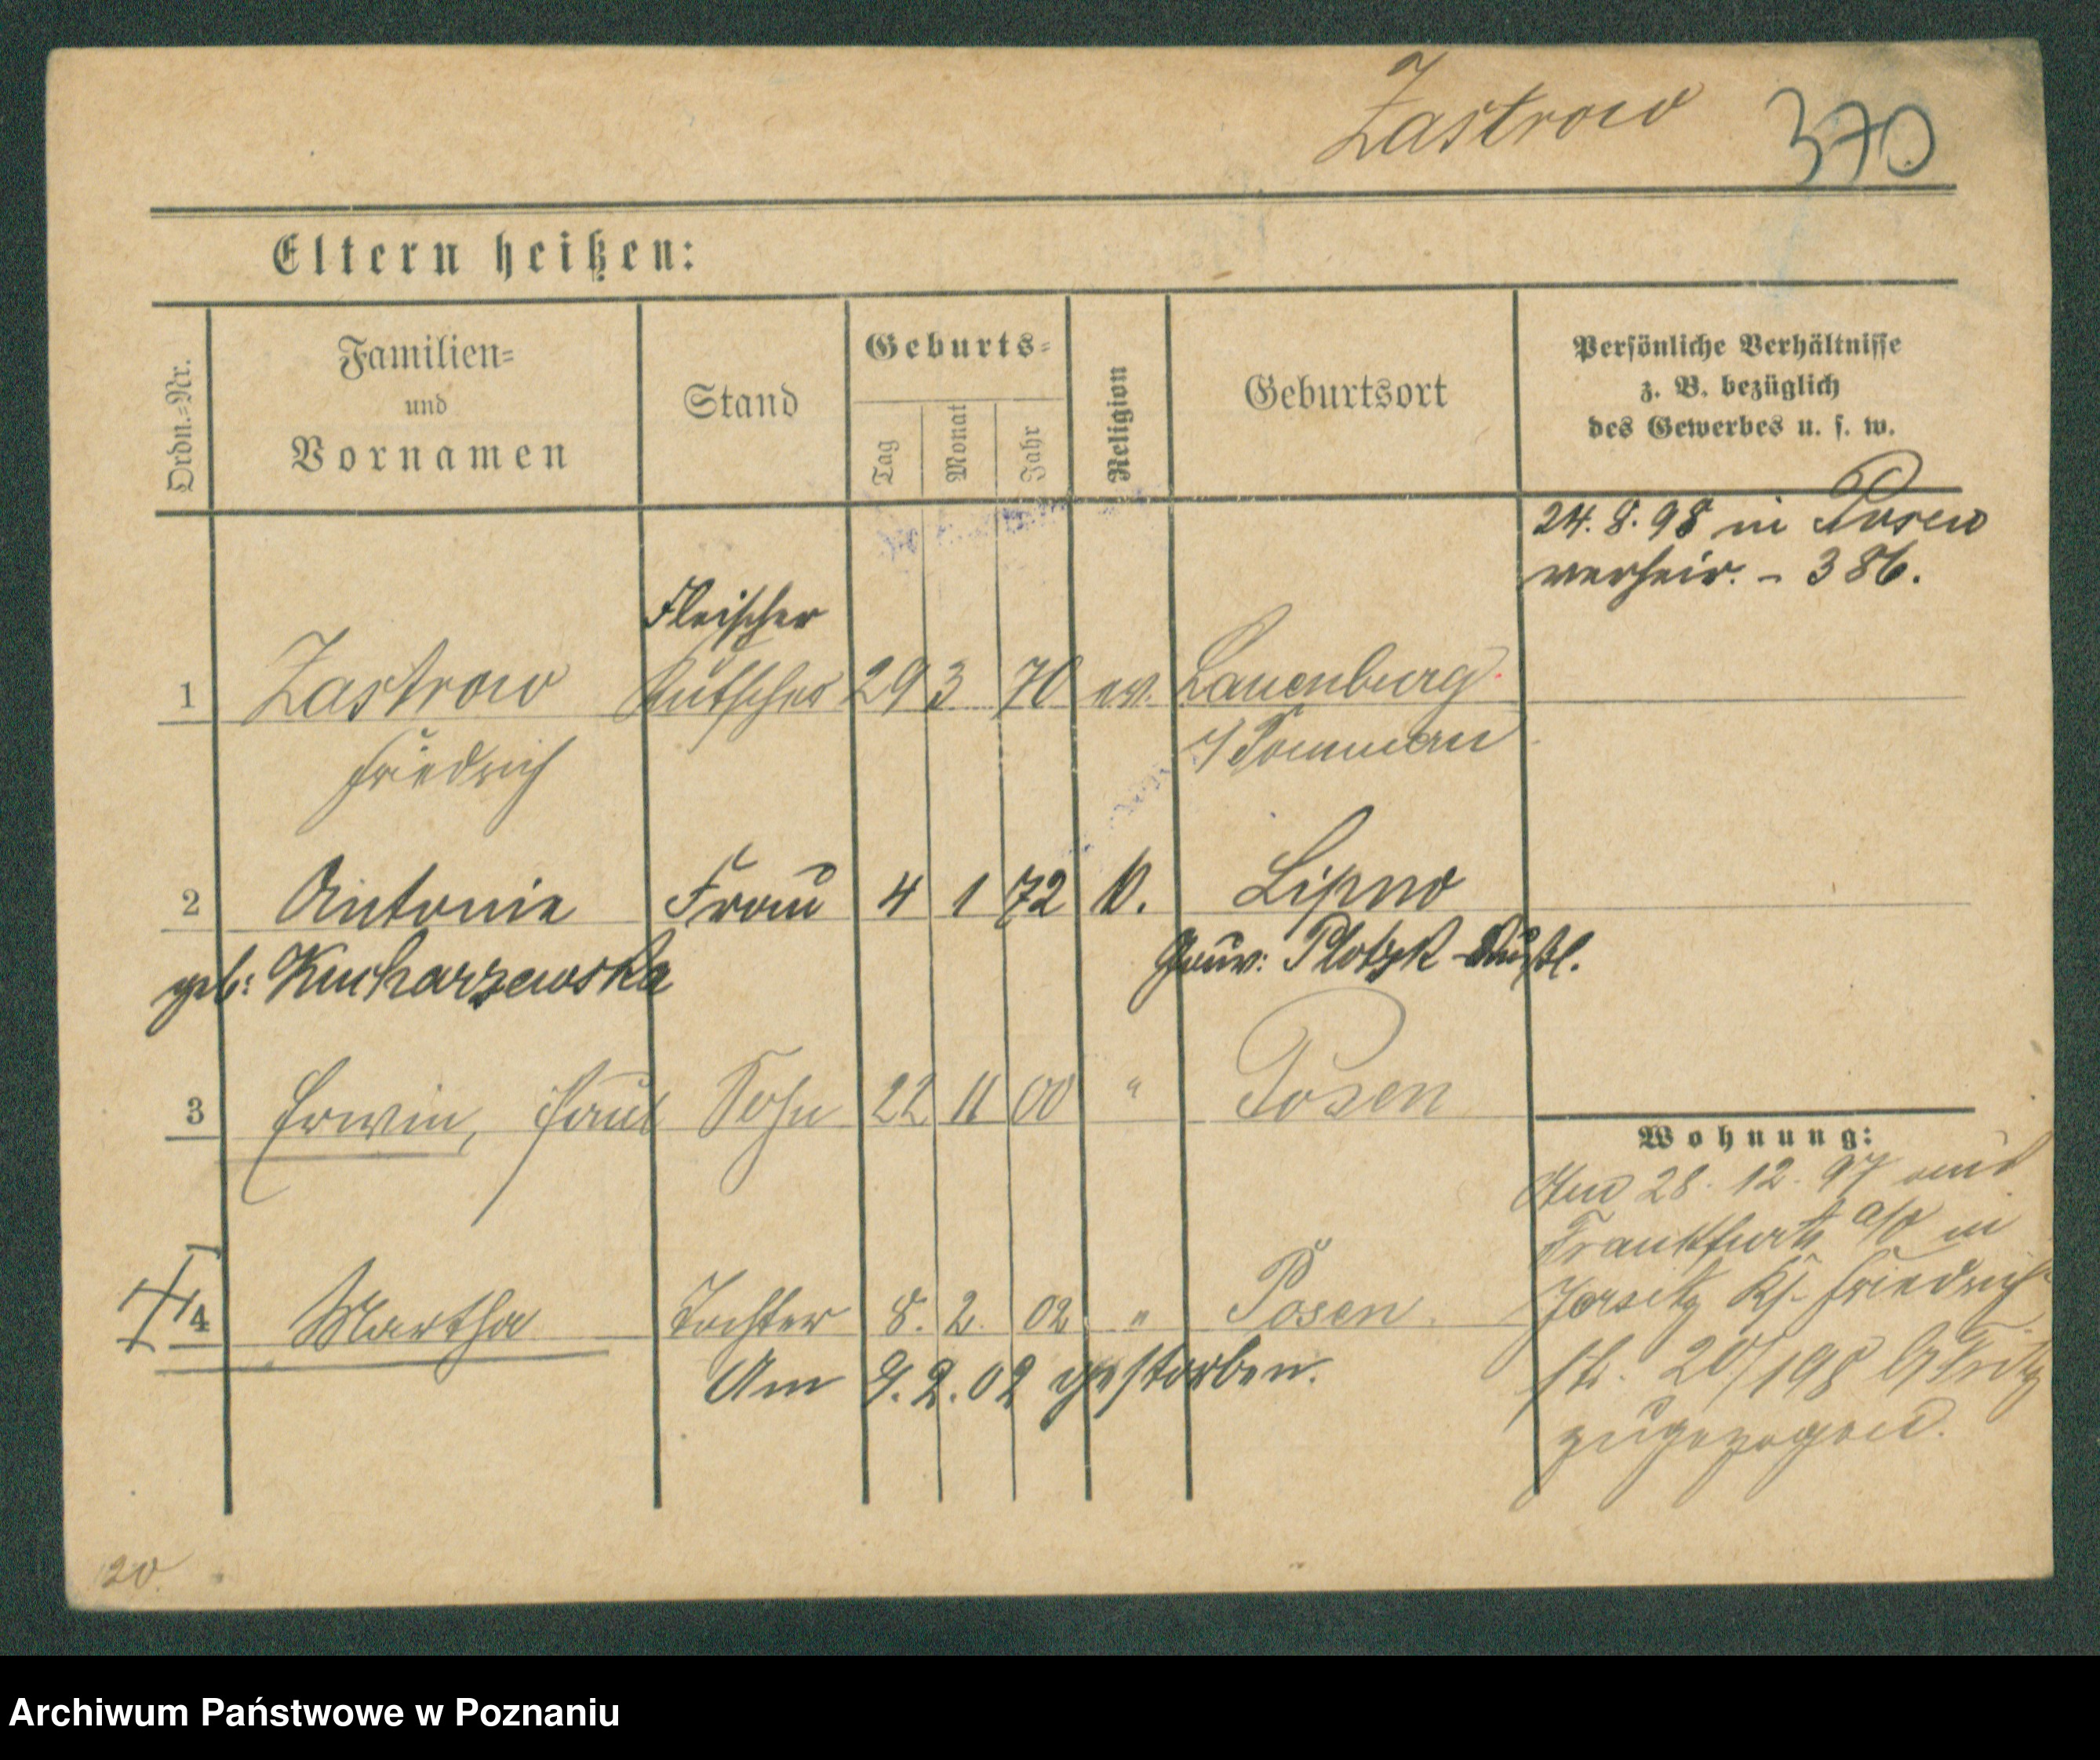 Zastrow 370
Eltern heißen:
Ordn.=Nr.
Familien=
und
Vornamen
Stand
Geburts=
Tag
Monat
Jahr
Religion
Geburtsort
Persönliche Verhältnisse
z. B. bezüglich
des Gewerbes u. s. w.
24. 8. 98 in Posen
verheir. - 386.
Fleischer
1 Zastrow Kutscher 29 3 70 ev. Lauenburg
Friedrich i/ Pommern
2 Antonie Frau 4 1 72 k. Lipno
geb: Kucharzewska Gouv: Plotzk Rußl.
3 Erwin, Paul Sohn 22 11 00 " Posen
4 Martha Tochter 8. 2. 02 " Posen.
Am 9. 2. 02 gestorben.
Wohnung:
Am 28. 12. 97 aus
Frankfurt a/O in
Jersitz Friedrich
str. 20/198
zugezogen.
20
Archiwum Państwowe w Poznaniu